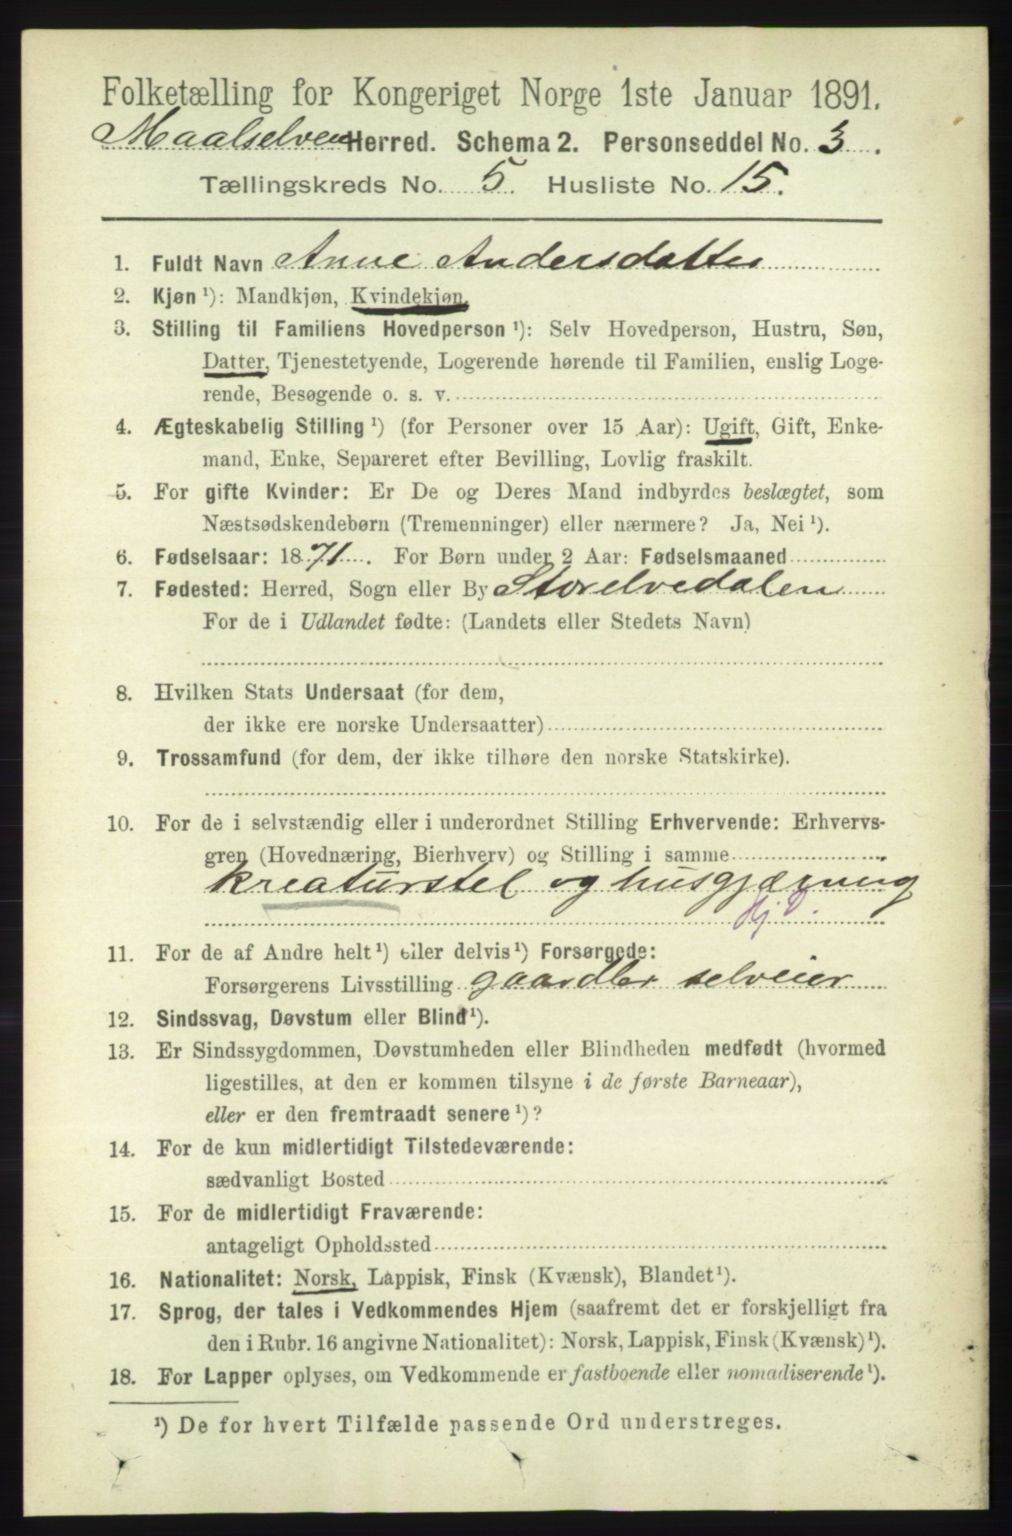 Folketælling for Kongeriget Norge 1ste Januar 1891.
Maalselven Herred. Schema 2. Personseddel No. 3.
Tællingskreds No. 5. Husliste No. 15.
1. Fuldt Navn Anne Andersdatter
2. Kjøn ¹): Mandkjøn, Kvindekjøn.
3. Stilling til Familiens Hovedperson ¹): Selv Hovedperson, Hustru, Søn,
Datter, Tjenestetyende, Logerende hørende til Familien, enslig Loge-
rende, Besøgende o. s. v.
4. Ægteskabelig Stilling ¹) (for Personer over 15 Aar): Ugift, Gift, Enke-
mand, Enke, Separeret efter Bevilling, Lovlig fraskilt.
5. For gifte Kvinder: Er De og Deres Mand indbyrdes beslægtet, som
Næstsødskendebørn (Tremenninger) eller nærmere? Ja, Nei ¹).
6. Fødselsaar: 1871. For Børn under 2 Aar: Fødselsmaaned
7. Fødested: Herred, Sogn eller By Storelvedalen
For de i Udlandet fødte: (Landets eller Stedets Navn)
8. Hvilken Stats Undersaat (for dem,
der ikke ere norske Undersaatter)
9. Trossamfund (for dem, der ikke tilhøre den norske Statskirke).
10. For de i selvstændig eller i underordnet Stilling Erhvervende: Erhvervs-
gren (Hovednæring, Bierhverv) og Stilling i samme
kreaturstel og husgjærning
Hj D.
11. For de af Andre helt ¹) eller delvis ¹) Forsørgede:
Forsørgerens Livsstilling gaardbr selveier
12. Sindssvag, Døvstum eller Blind ¹).
13. Er Sindssygdommen, Døvstumheden eller Blindheden medfødt (hvormed
ligestilles, at den er kommen tilsyne i de første Barneaar),
eller er den fremtraadt senere ¹)?
14. For de kun midlertidigt Tilstedeværende:
sædvanligt Bosted
15. For de midlertidigt Fraværende:
antageligt Opholdssted
16. Nationalitet: Norsk, Lappisk, Finsk (Kvænsk), Blandet ¹).
17. Sprog, der tales i Vedkommendes Hjem (saafremt det er forskjelligt fra
den i Rubr. 16 angivne Nationalitet): Norsk, Lappisk, Finsk (Kvænsk) ¹).
18. For Lapper oplyses, om Vedkommende er fastboende eller nomadiserende ¹).
¹) De for hvert Tilfælde passende Ord understreges.